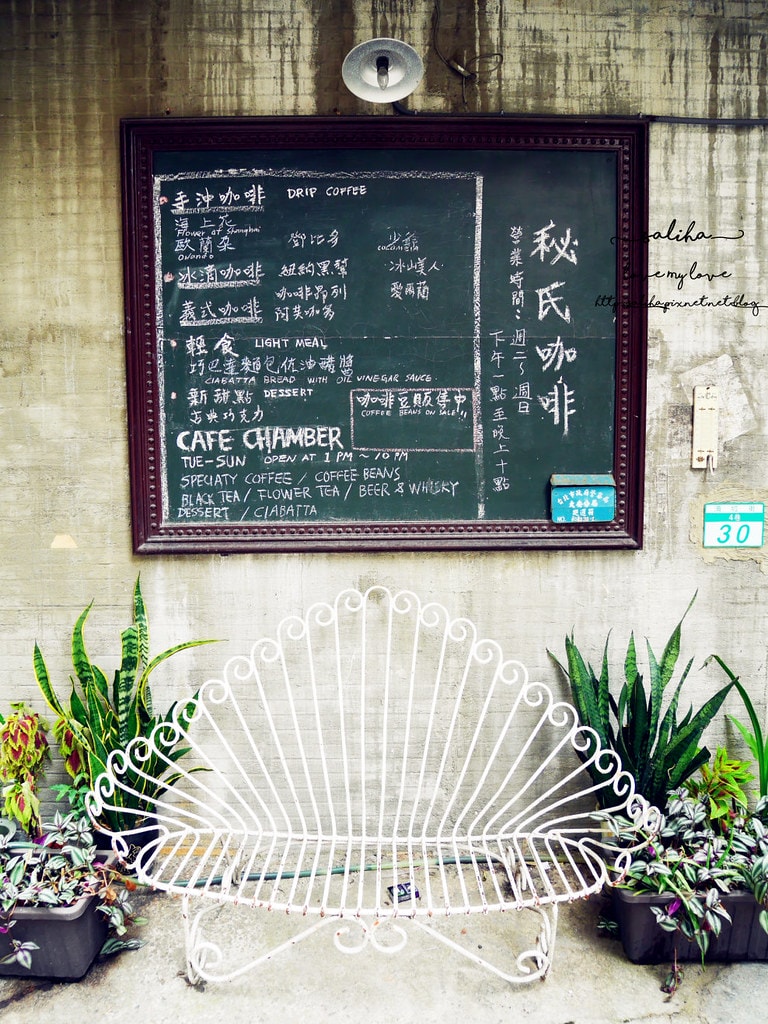 手沖咖啡 DRIP COFFEE
海上花
Flower of Shanghai
歐蘭朵 鄧比多
Orlando
冰滴咖啡 紐約黑幫 冰山美人
義式咖啡 咖啡昂列 愛爾蘭
阿芙佳多
輕食 LIGHT MEAL
巧巴達麵包佐油醋醬
CIABATTA BREAD WITH OIL VINEGAR SAUCE
新甜點 DESSERT
古典巧克力
咖啡豆販售中
COFFEE BEANS ON SALE!!
CAFE CHAMBER
TUE-SUN OPEN AT 1 PM ~ 10 PM
SPECIALTY COFFEE / COFFEE BEANS
BLACK TEA / FLOWER TEA / BEER & WHISKY
DESSERT / CIABATTA
秘氏咖啡
營業時間：週二~週日
下午一點至晚上十點
台北市政府警察局
大安分局
巡邏箱
4巷
30
saliha
love my love